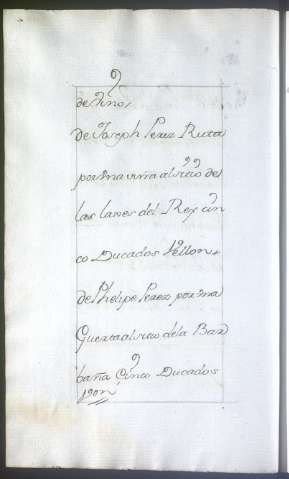 de Vino,
de Joseph Perez Ruta
por Vna viña al sitio de
las laves del Rey cin
co Ducados Vellon,
de Phelipe Perez por Vna
Guerta al sitio dela Bar
baña Cinco Ducados